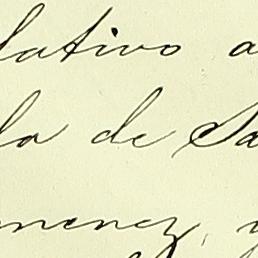 lativo a
la de Sa
menez, y